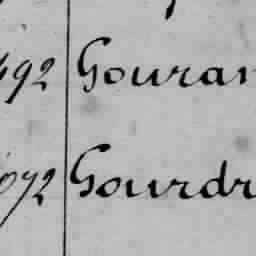 492 Gouran
072 Gourdr